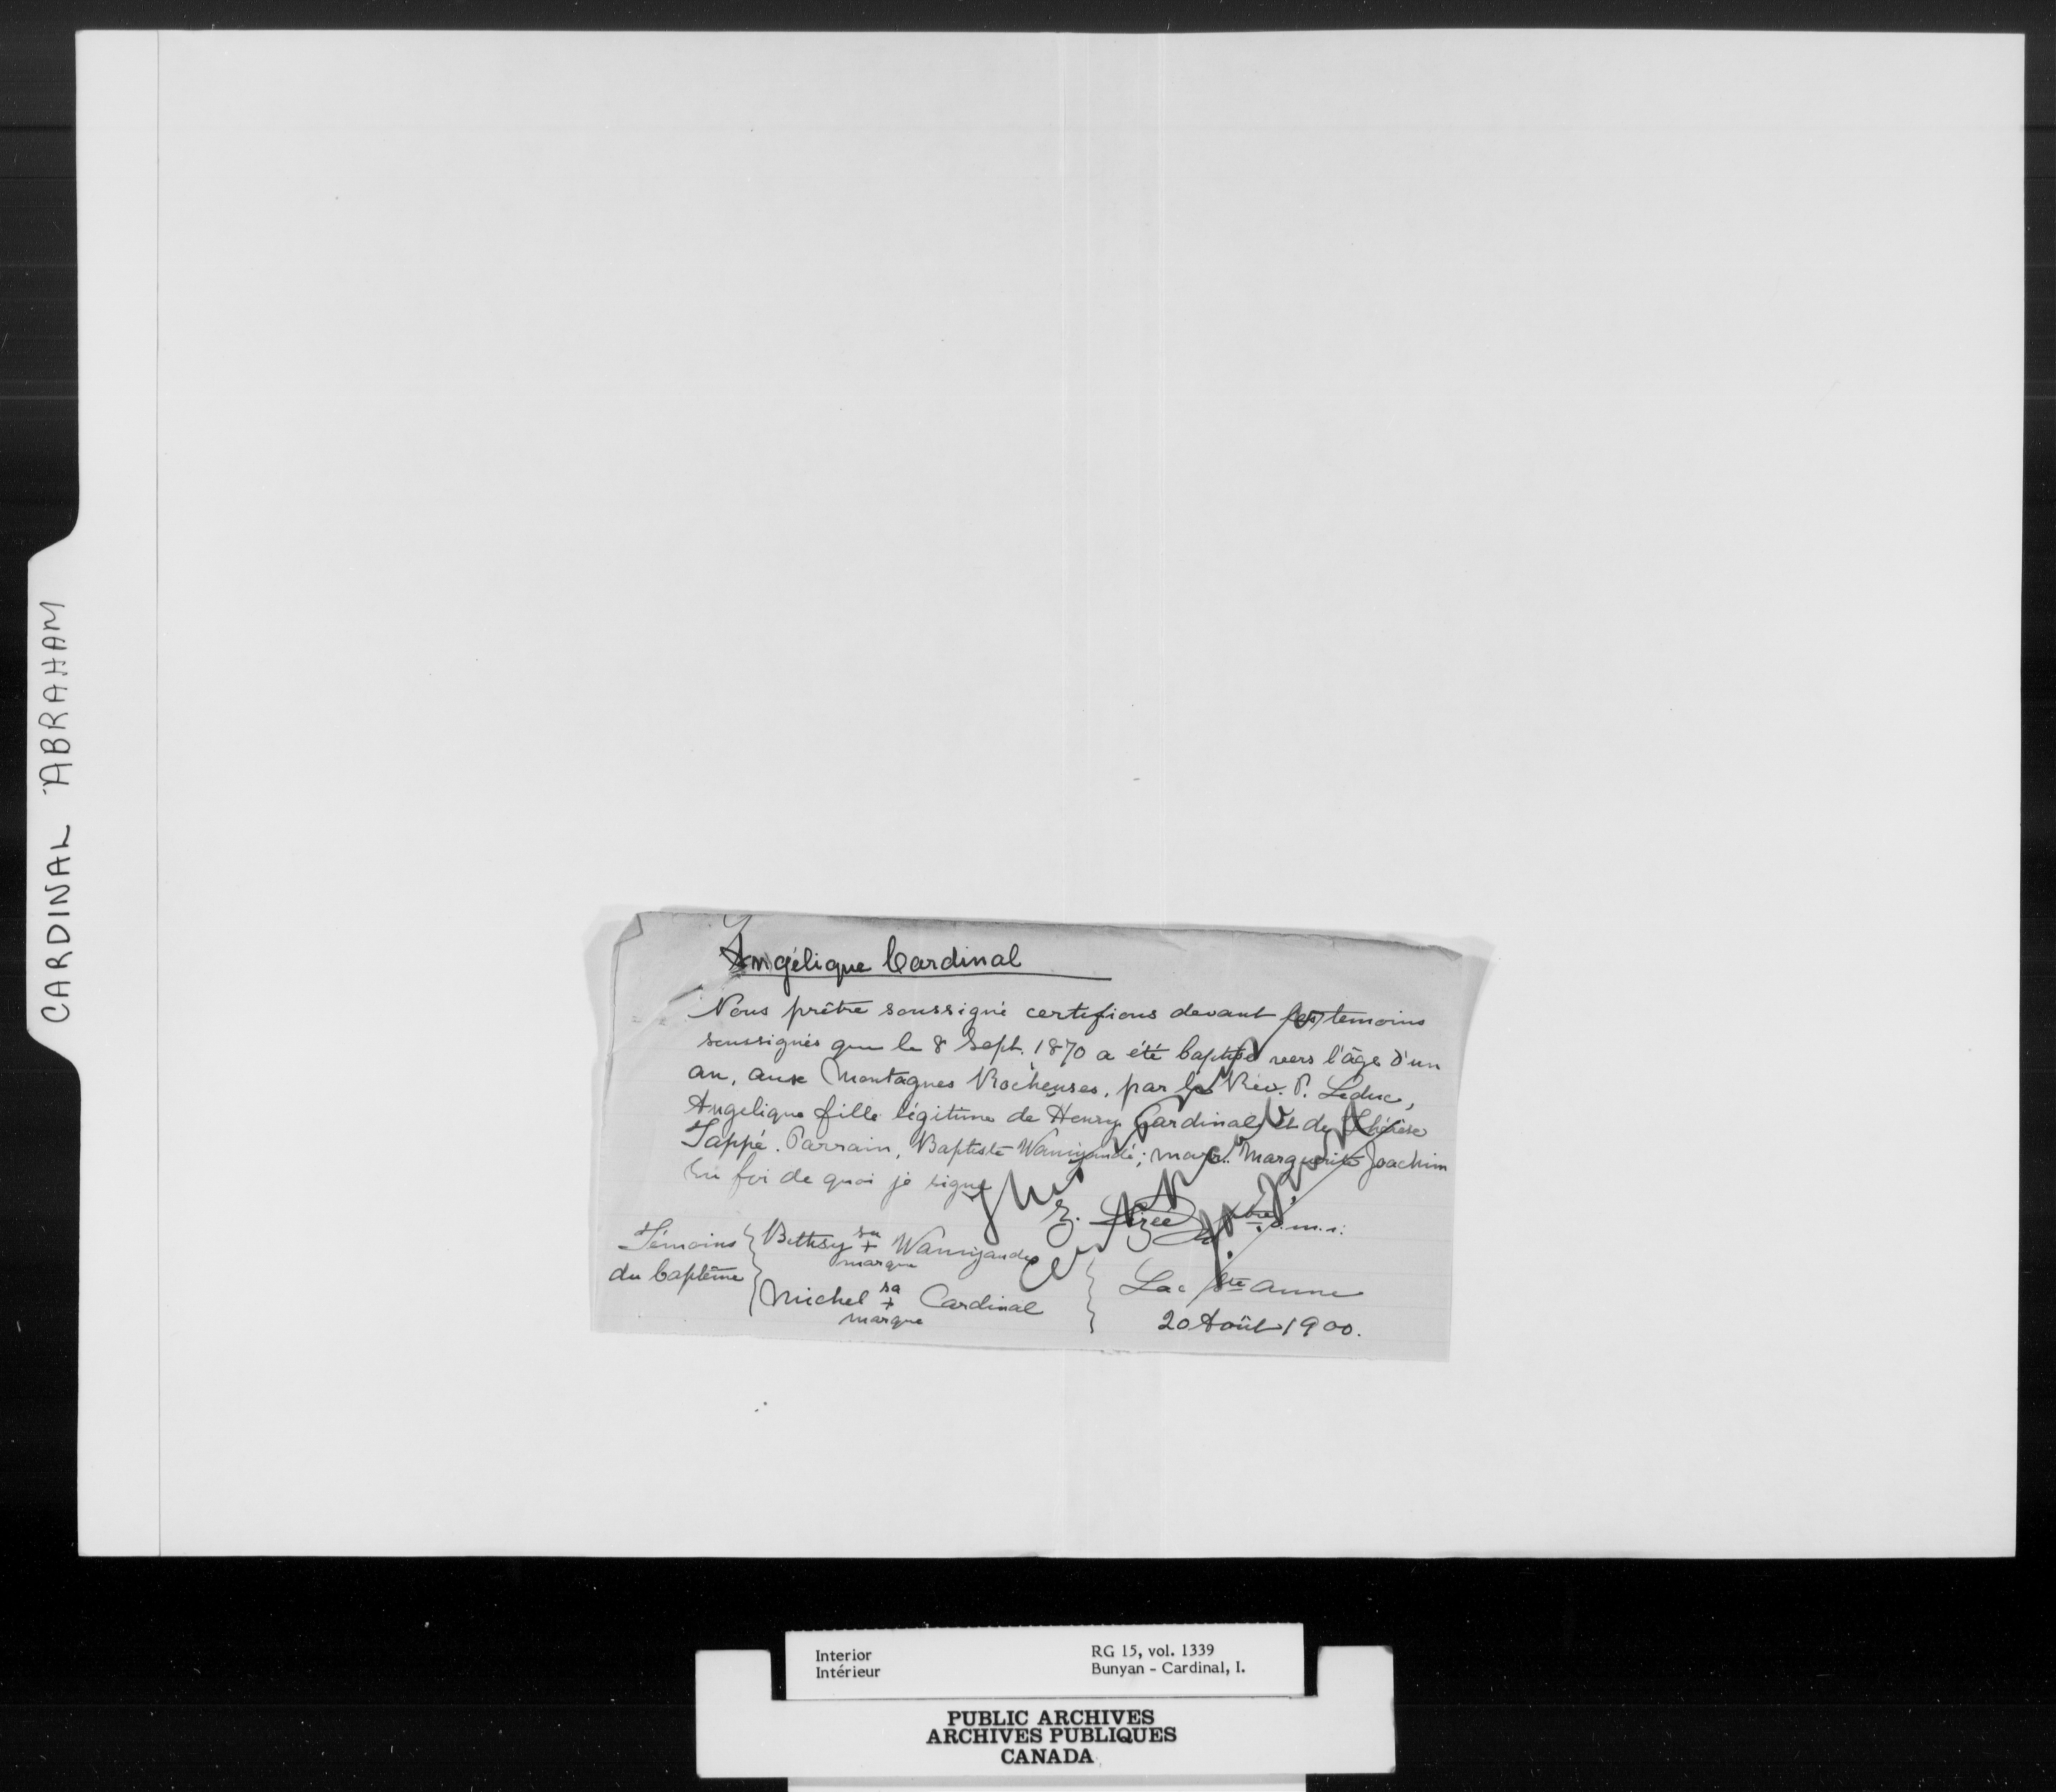 CARDINAL ABRAHAM
Angélique Cardinal
Nous prêtre soussigné certifions devant les temoins
soussignés que le 8 Sept. 1870 a été baptisé vers l'âge d'un
an, aux Montagnes Rocheuses, par le Rév. P. Leduc,
Angelique fille légitime de Henry Cardinal et de Thérèse
Tappé. Parrain, Baptiste Waniyandé; marr. Marguerite Joachim
En foi de quoi je signe
Z. Lizée ptre o.m.i.
Témoins
du baptême
Bethsy sa + marque Waniyande
Michel sa + marque Cardinal
Lac Ste Anne
20 Août 1900.
Interior
Intérieur
RG 15, vol. 1339
Bunyan - Cardinal, I.
PUBLIC ARCHIVES
ARCHIVES PUBLIQUES
CANADA